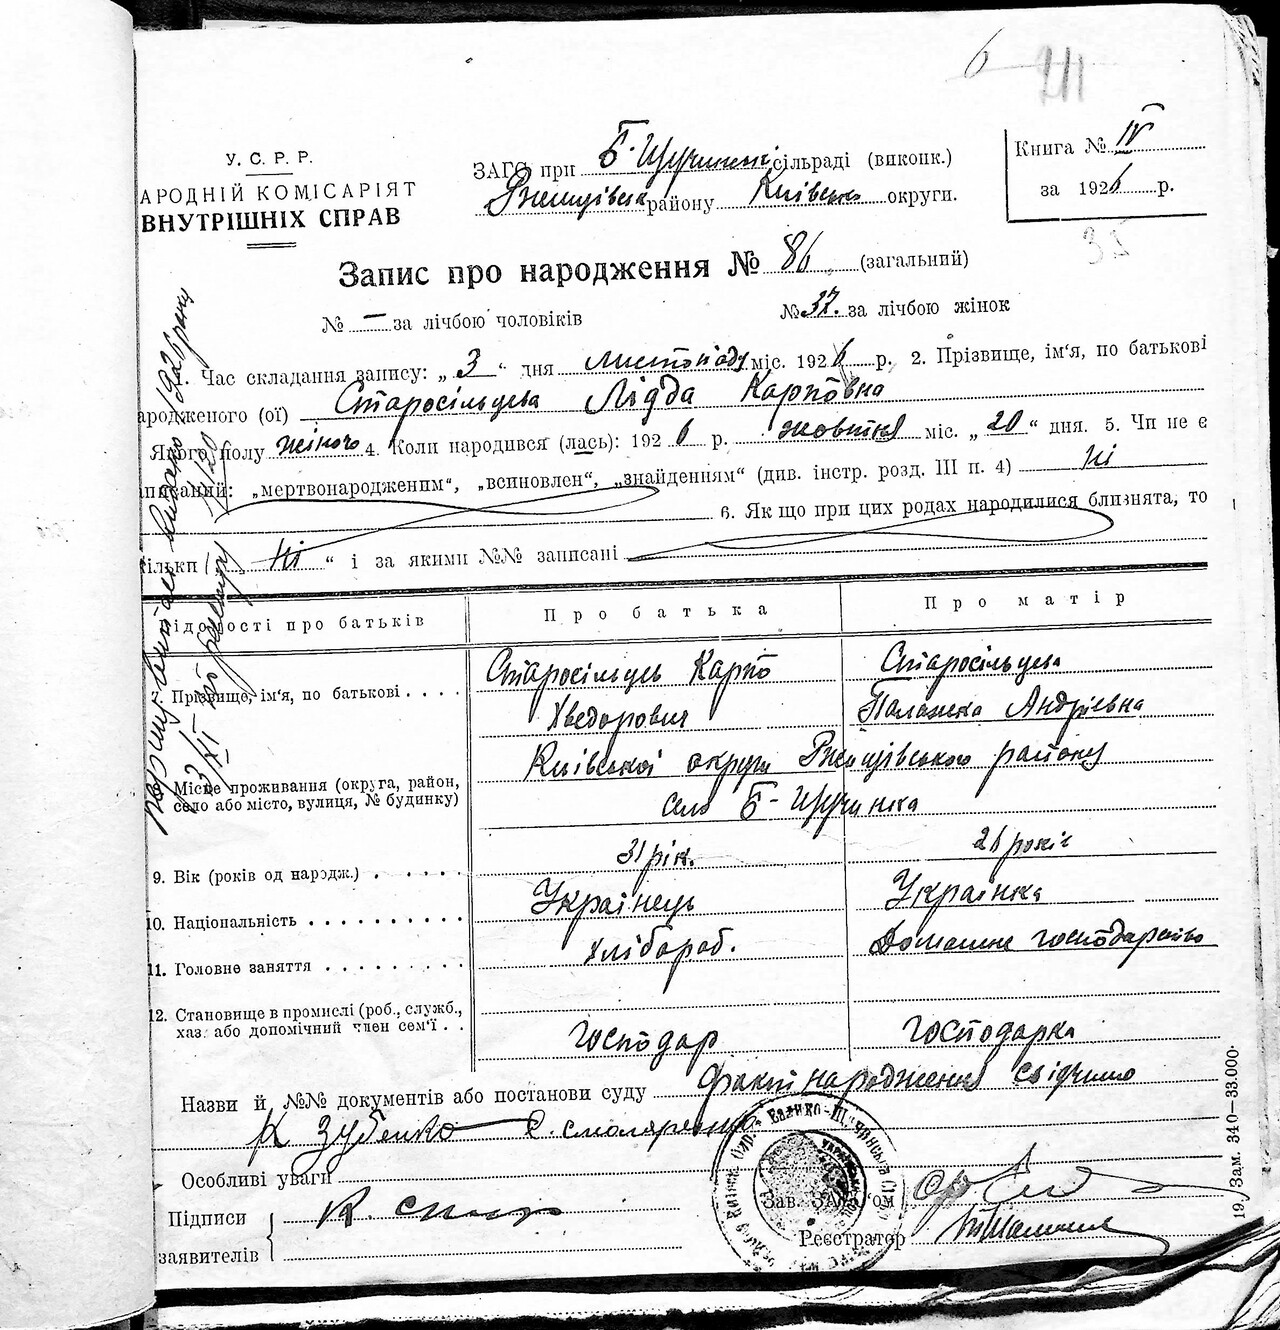 6 211
У. С. Р. Р.
АРОДНІЙ КОМІСАРІЯТ
ВНУТРІШНІХ СПРАВ
ЗАГС при Б-Щучинській сільраді (виконк.)
Ржищівськ району Київсько округи.
Книга № IV
за 1926 р.
35
Запис про народження № 86 (загальний)
№ — за лічбою чоловіків
№ 37. за лічбою жінок
1. Час складання запису: „ 3 “ дня листопаду міс. 1926 р. 2. Прізвище, ім‘я, по батькові
ародженого (ої) Старосільцева Лідда Карповна
Якого полу жіночо 4. Коли народився (лась): 1926 р. жовтня міс. „ 20 “ дня. 5. Чи не є
аписаний: „мертвонародженим“, „всиновлен“, „знайденням“ (див. інстр. розд. III п. 4) ні
6. Як що при цих родах народилися близнята, то
ільки „ ні “ і за якими №№ записані
ідомості про батьків
Про батька
Про матір
7. Прізвище, ім‘я, по батькові . . . .
Старосілець Карпо
Хведорович
Старосільцева
Палажка Андріевна
Місце проживання (округа, район,
село або місто, вулиця, № будинку)
Київської округи Ржищівського району
село Б-Щучинка
9. Вік (років од народж.) . . . . .
31 рік.
26 років
10. Національність . . . . . . . . .
Українець
Українка
11. Головне заняття . . . . . . . .
Хлібороб.
Домашне господарство
12. Становище в промислі (роб., служб.,
хаз. або допомічний член сем‘ї . .
Господар
Господарка
Назви й №№ документів або постанови суду Факт народження свідчимо
К Зубенко С. Смоляренко
Особливі уваги
Підписи
заявителів
К.
Зав. ЗАГС‘ом
Реєстратор
19. Зам. 340—33.000.